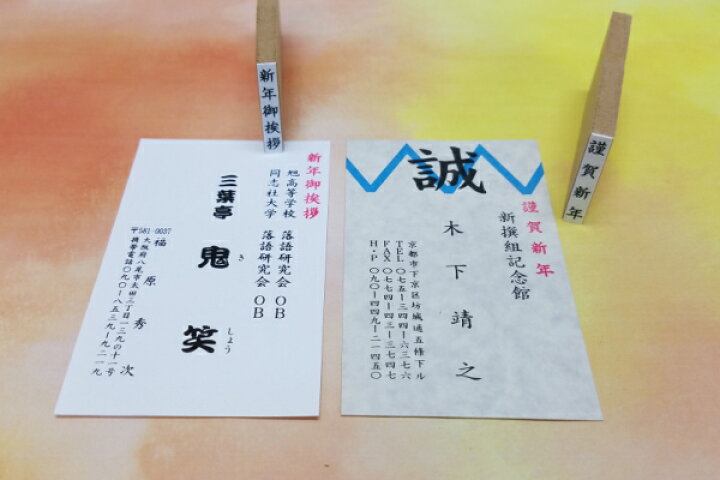 新年御挨拶
謹賀新年
新年御挨拶
旭高等学校 落語研究会 OB
同志社大学 落語研究会 OB
三葉亭 鬼 笑
き しょう
福原 秀次
〒581-0037
大阪府八尾市太田三丁目一三九の十一号
携帯電話〇九〇-八五三九-九二一九
誠
謹賀新年
新撰組記念館
木下靖之
京都市下京区坊城通五條下ル
TEL 〇七五-三四四-六三七六
FAX 〇七七四-四三-三七四七
H・P 〇九〇-四四九-二一四五〇